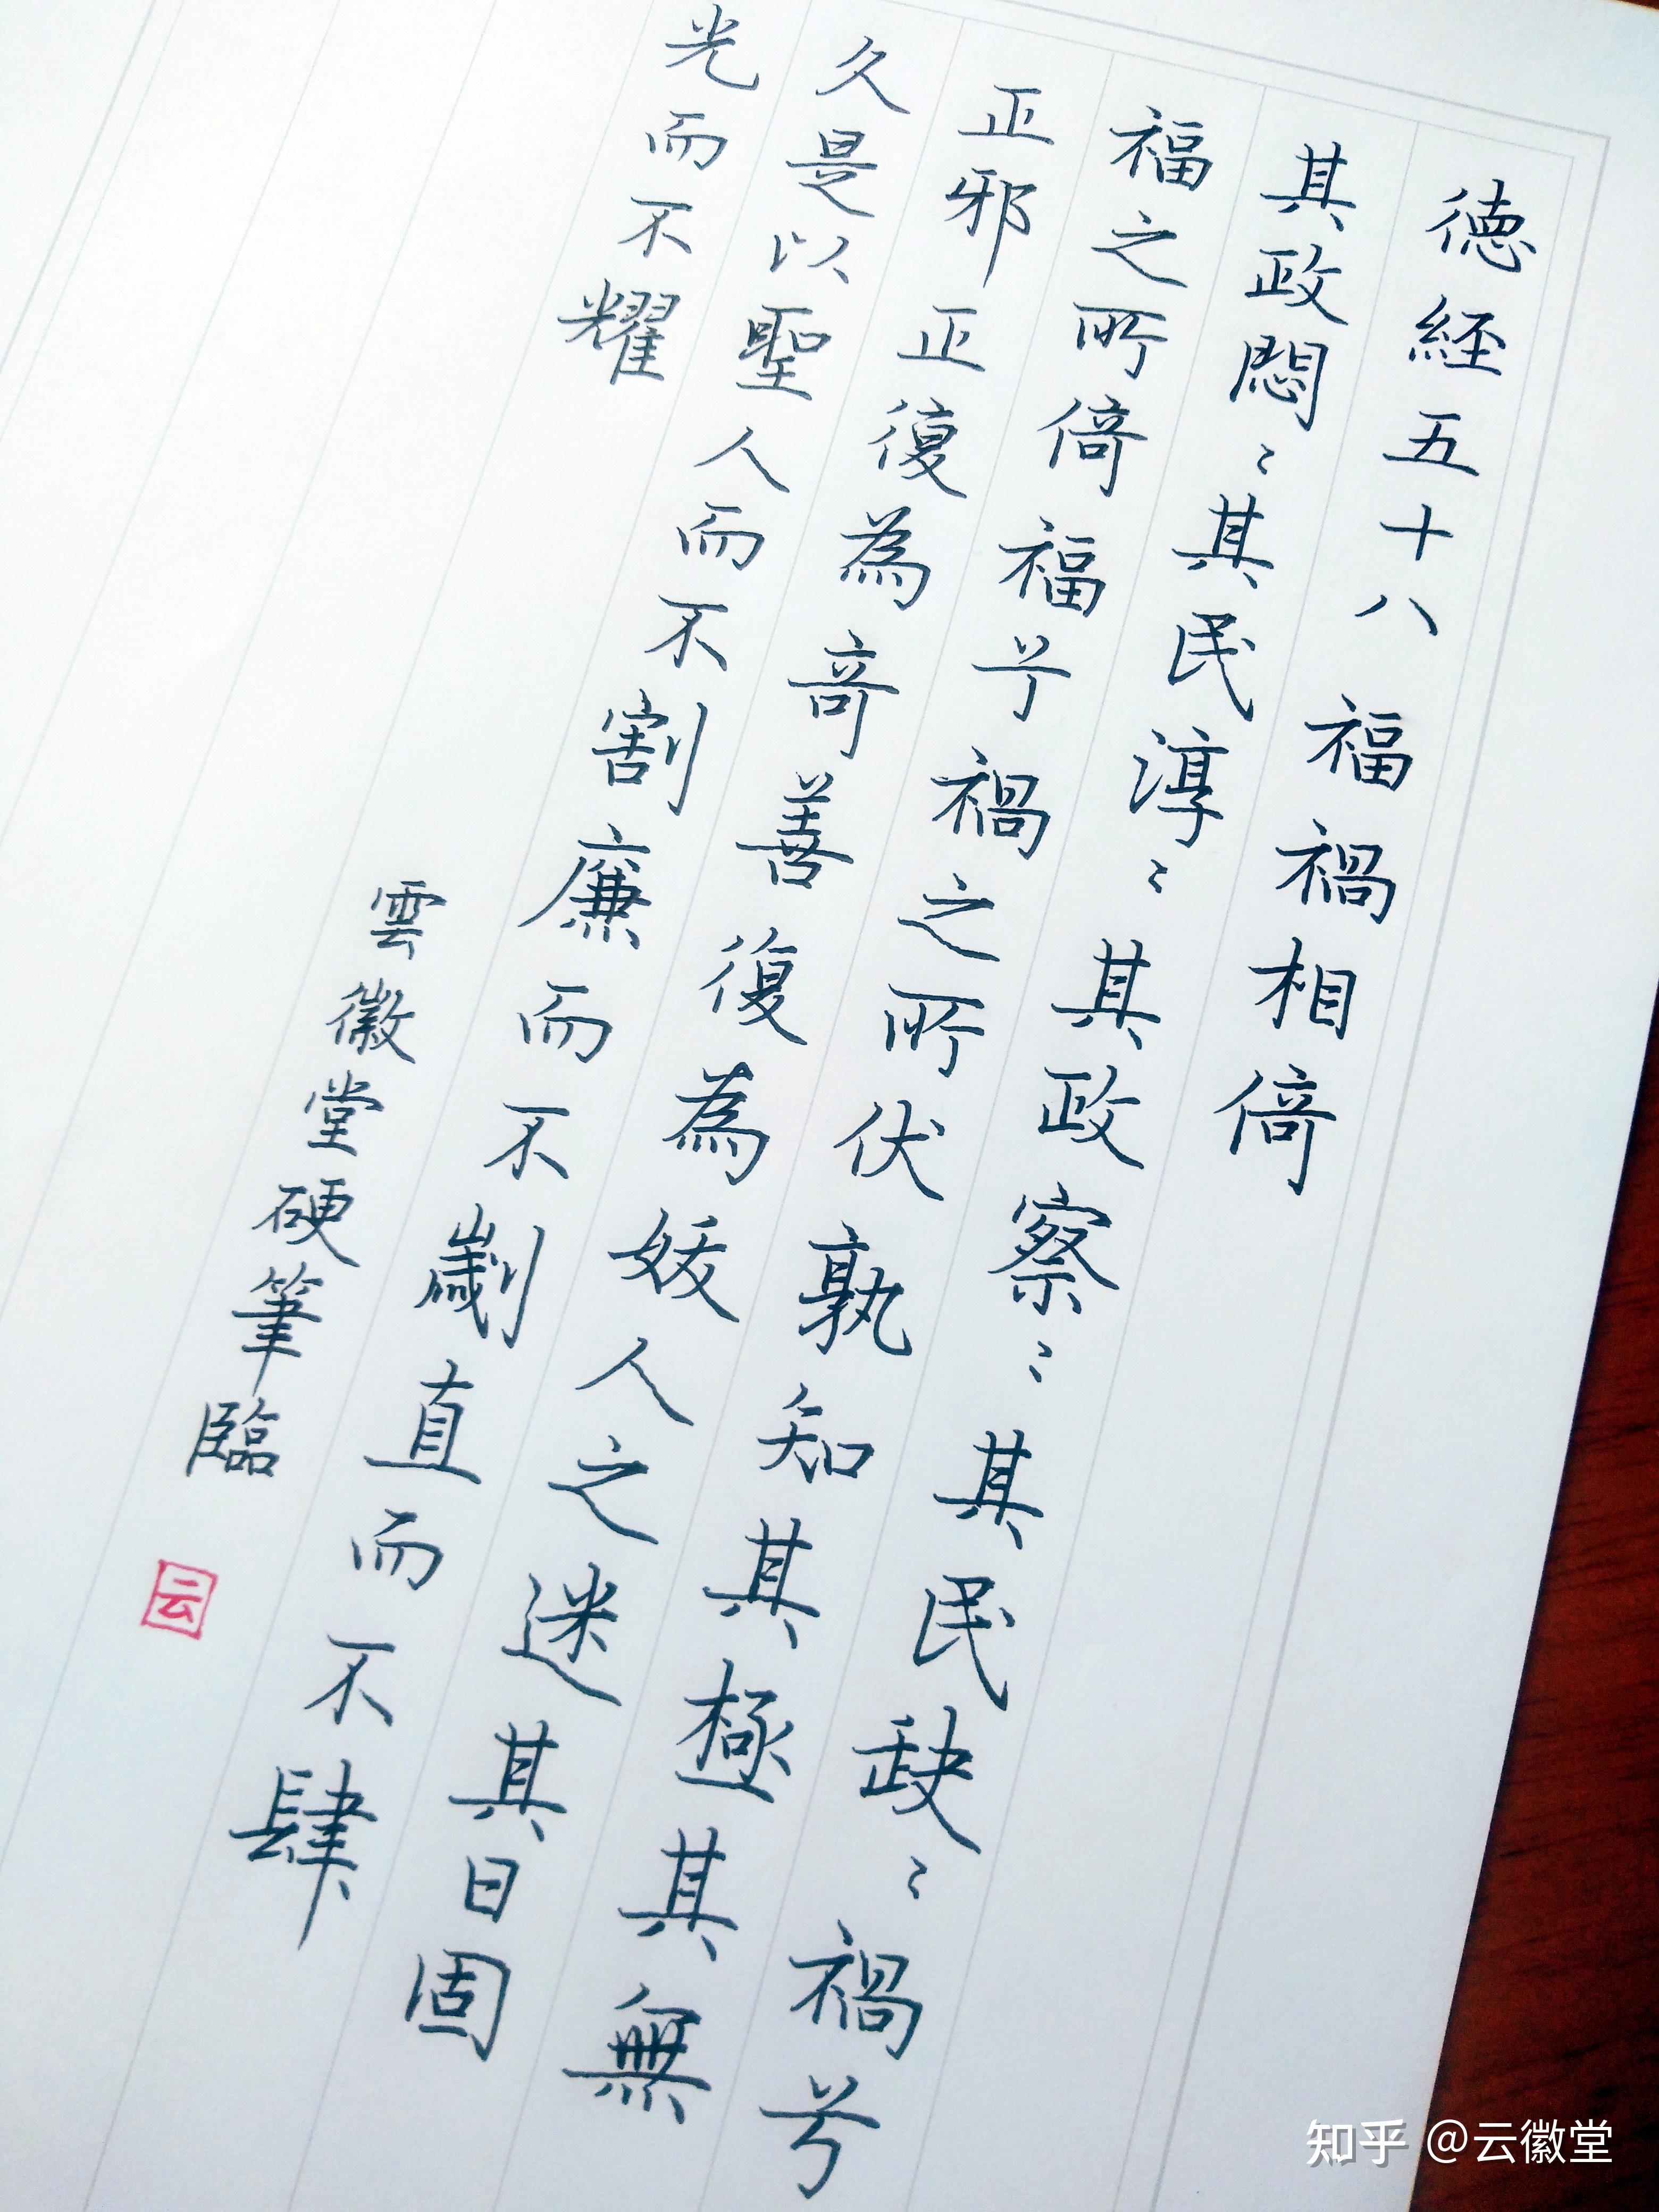 徳經五十八 福禍相倚
其政悶〻其民淳〻其政察〻其民缺〻禍兮
福之所倚福兮禍之所伏孰知其極其無
正邪正復為竒善復為妖人之迷其日固
久是以聖人而不割廉而不劌直而不肆
光而不耀
雲徽堂硬筆臨
云
知乎 @云徽堂